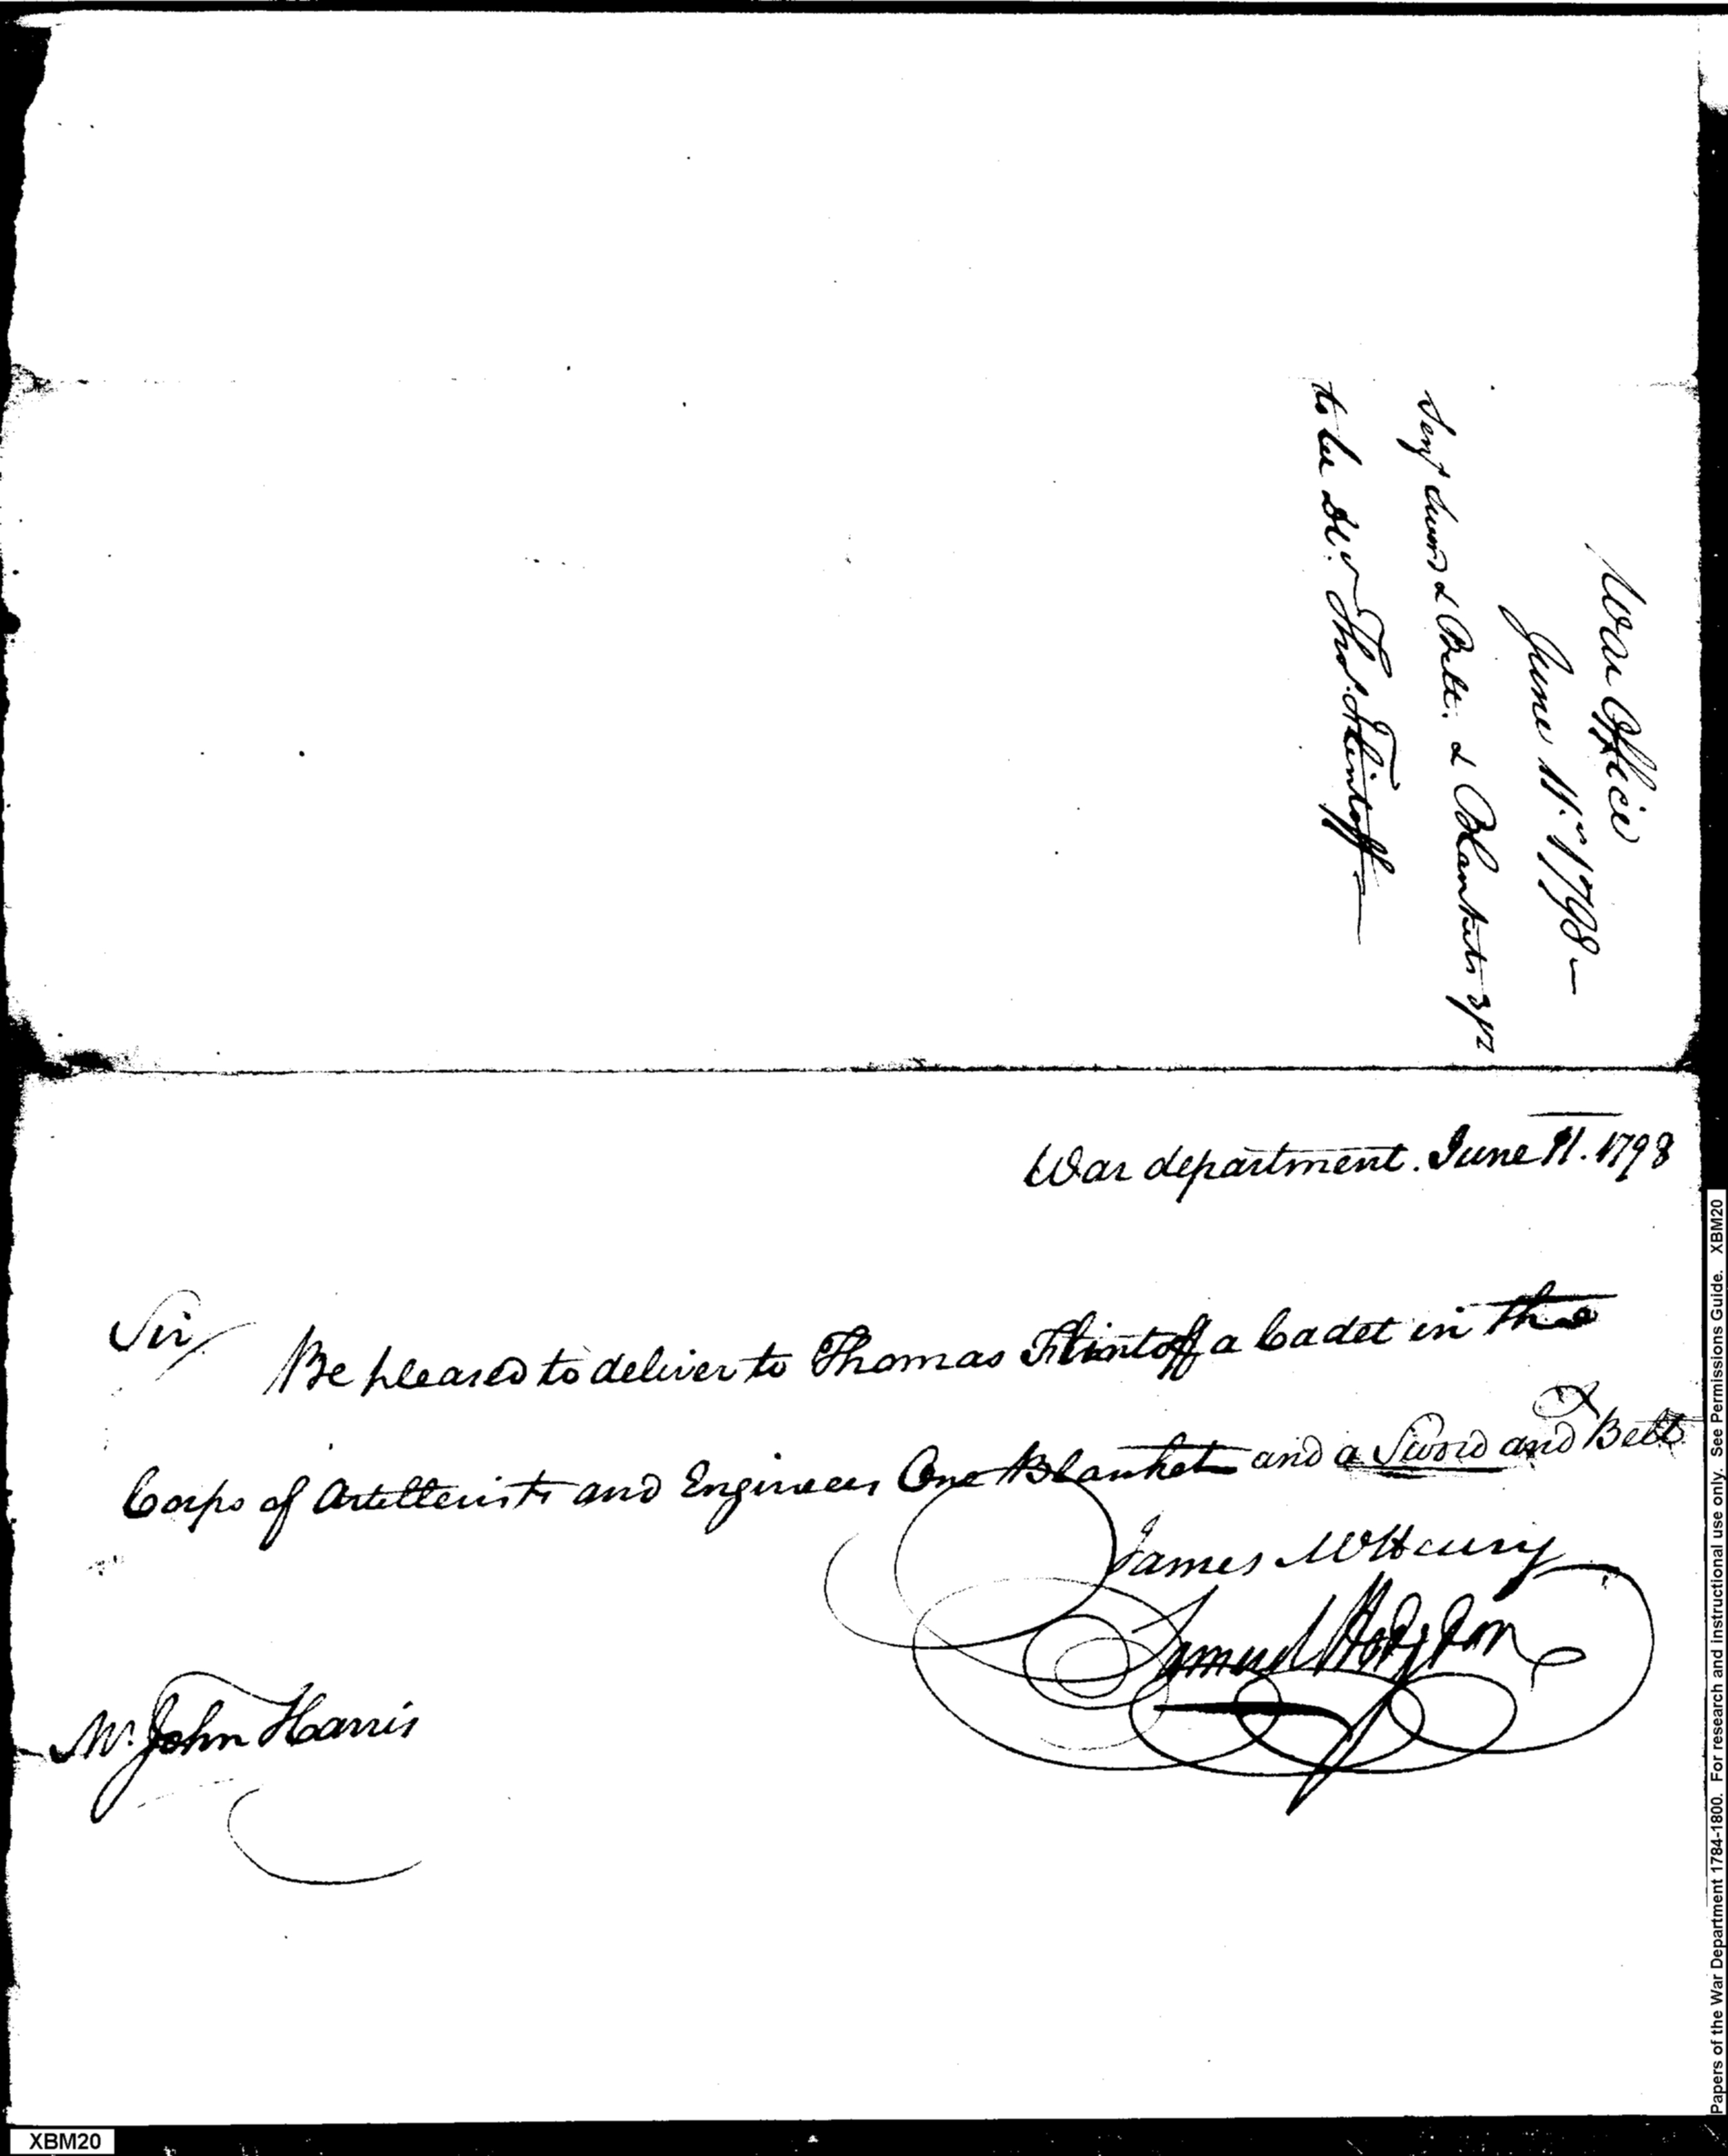 War Office
June 11. 1798—
Serj't Sword & Belt. & Blankets 3/pt
to be del'd Thos. Flintoff—
War department. June 11. 1798
Sir/
Be pleased to deliver to Thomas Flintoff a Cadet in the
Corps of Artillerists and Engineers One Blanket and a Sword and Belt
James McHenry
Samuel Hodgdon
Mr. John Harris
Papers of the War Department 1784-1800. For research and instructional use only. See Permissions Guide. XBM20
XBM20